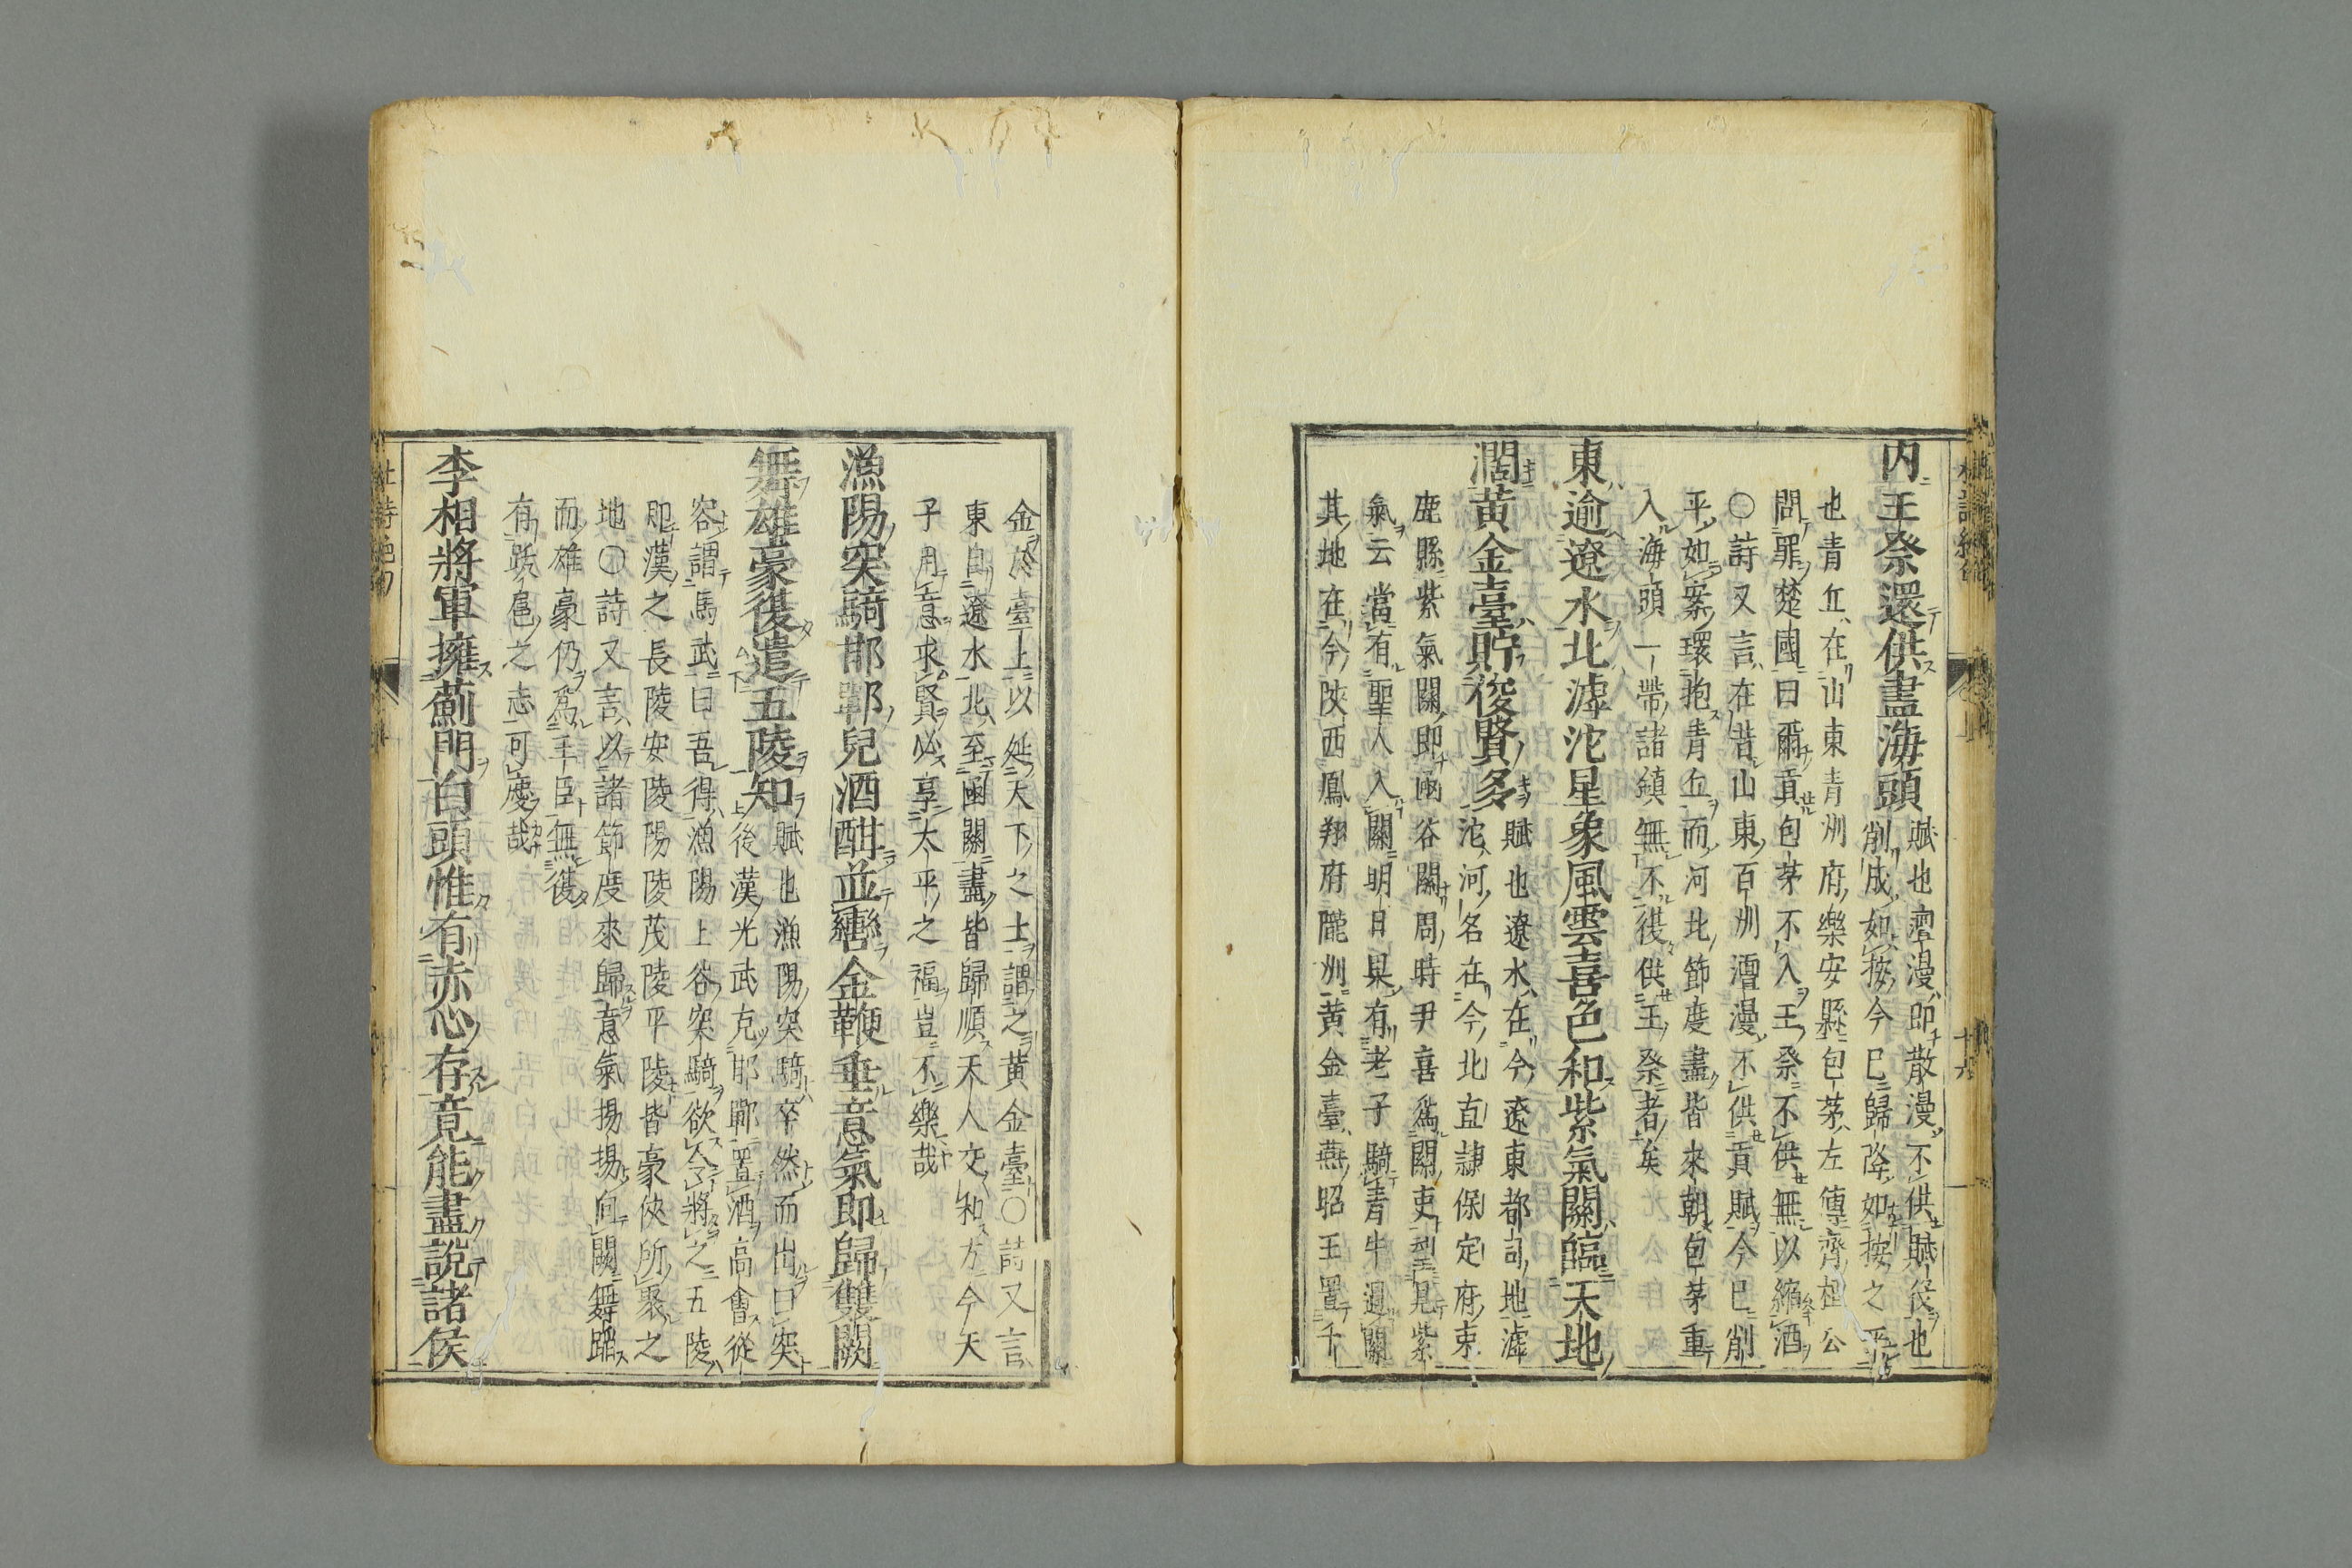 内王祭還供盡海頭賦也澶漫即散漫不供賦役也
削成如按今已歸降如按之平
也青丘在山東青州府樂安縣包茅左傳齊桓公
問罪楚國曰爾貢包茅不入王祭不供無以縮酒
○詩又言在昔山東百州澶漫不供貢賦今已削
平如案環抱青丘而河北節度盡皆來朝包茅重
入海頭一帶諸鎮無不復供王祭者矣
東逾遼水北滹沱星象風雲喜色和紫氣關臨天地
濶黃金臺貯俊賢多賦也遼水在今遼東都司地滹
沱河名在今北直隷保定府束
鹿縣紫氣關即函谷關周時尹喜爲關吏望見紫
氣云當有聖人入關明日果有老子騎青牛過關
其地在今陝西鳳翔府隴州黃金臺燕昭王置千
金於臺上以延天下之士謂之黃金臺○詩又言
東自遼水北至函關盡皆歸順天人交和方今天
子用意求賢必享太平之福豈不樂哉
漁陽突騎邯鄲兒酒酣並轡金鞭垂意氣即歸雙闕
舞雄豪復遣五陵知賦也漁陽突騎卒然而出曰突
後漢光武克邯鄲置酒高會從
容謂馬武曰吾得漁陽上谷突騎欲令將之五陵
即漢之長陵安陵陽陵茂陵平陵皆豪俠所聚之
地○詩又言以諸節度來歸意氣揚揚向闕舞蹈
而雄豪仍爲王臣無復
有跋扈之志可慶哉
李相將軍擁薊門白頭惟有赤心存竟能盡說諸侯